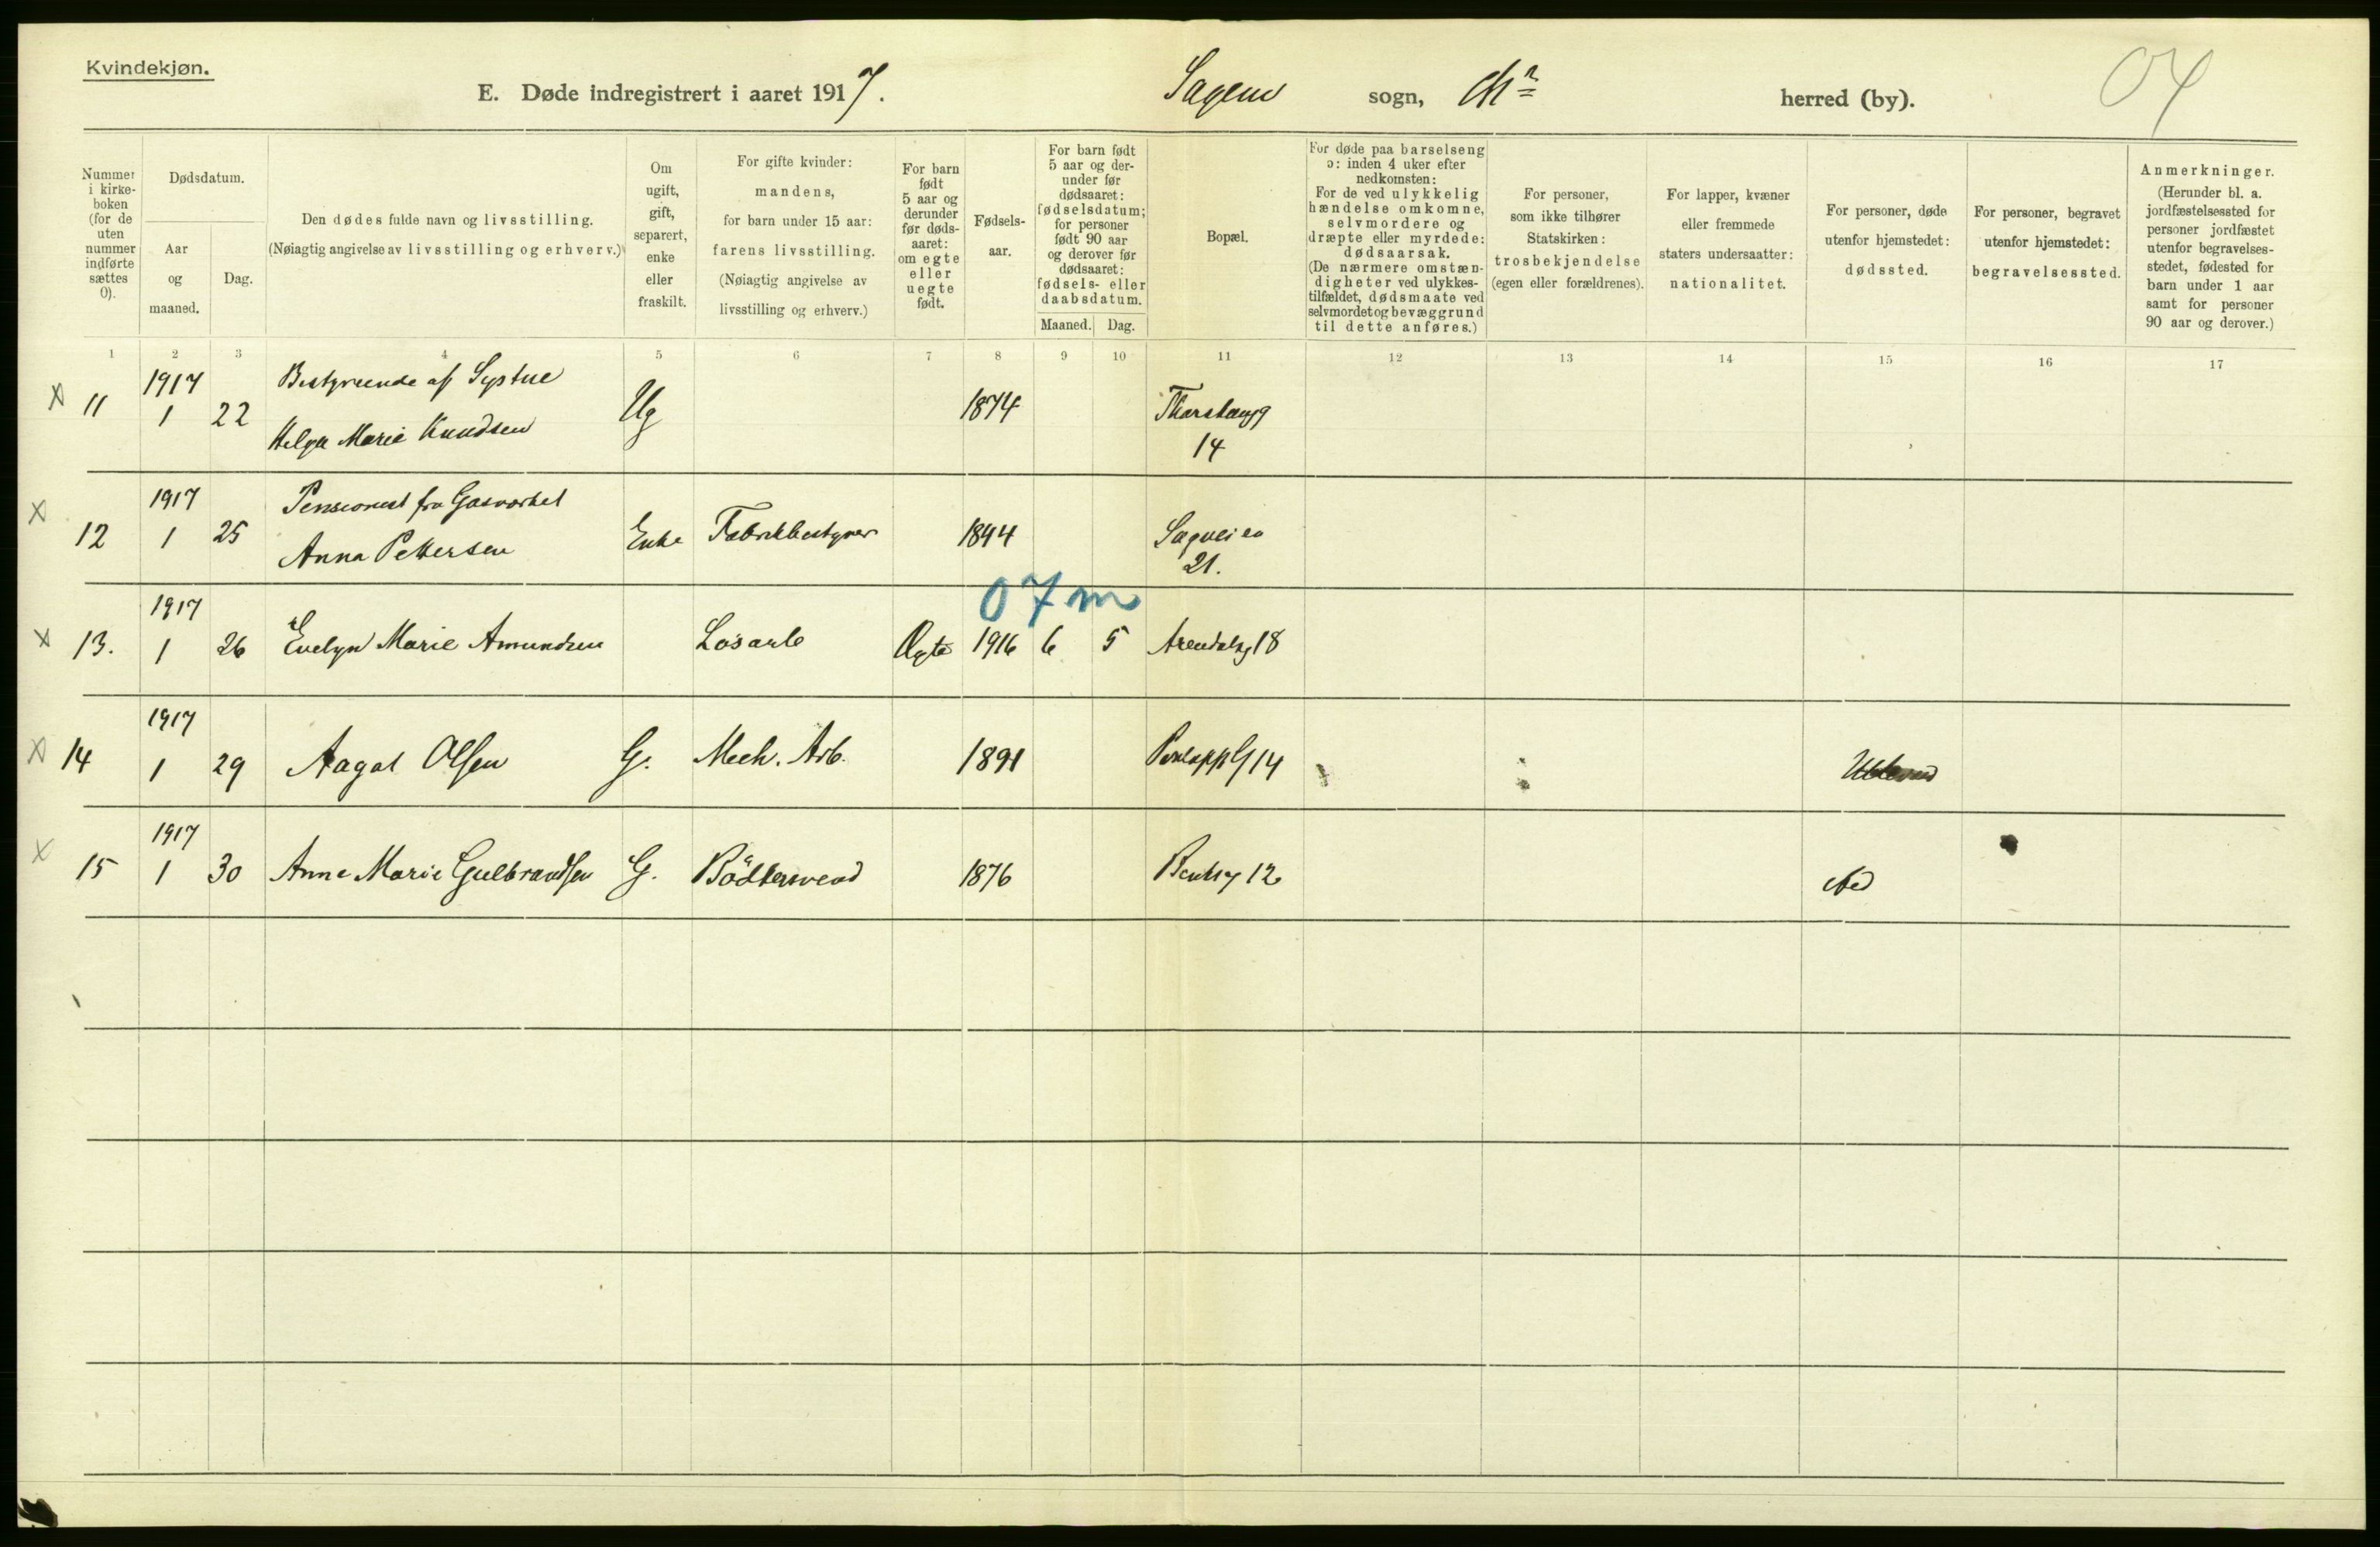 Kvindekjøn.
E. Døde indregistrert i aaret 1917. Sagene sogn, Chr. herred (by).
04
Nummer i kirkeboken (for de uten nummer indførte sættes 0).
Dødsdatum.
Aar og maaned.
Dag.
Den dødes fulde navn og livsstilling.
(Nøiagtig angivelse av livsstilling og erhverv.)
Om ugift, gift, separert, enke eller fraskilt.
For gifte kvinder:
mandens,
for barn under 15 aar:
farens livsstilling.
(Nøiagtig angivelse av
livsstilling og erhverv.)
For barn født 5 aar og derunder før dødsaaret: om egte eller uegte født.
Fødselsaar.
For barn født 5 aar og derunder før dødsaaret: fødselsdatum; for personer født 90 aar og derover før dødsaaret: fødsels- eller daabsdatum.
Maaned. Dag.
Bopæl.
For døde paa barselseng ɔ: inden 4 uker efter nedkomsten:
For de ved ulykkelig hændelse omkomne, selvmordere og dræpte eller myrdede: dødsaarsak.
(De nærmere omstændigheter ved ulykkestilfældet, dødsmaate ved selvmordet og bevæggrund til dette anføres.)
For personer, som ikke tilhører Statskirken: trosbekjendelse (egen eller forældrenes).
For lapper, kvæner eller fremmede staters undersaatter: nationalitet.
For personer, døde utenfor hjemstedet: dødssted.
For personer, begravet utenfor hjemstedet: begravelsessted.
Anmerkninger.
(Herunder bl. a. jordfæstelsessted for personer jordfæstet utenfor begravelsesstedet, fødested for barn under 1 aar samt for personer 90 aar og derover.)
1 2 3 4 5 6 7 8 9 10 11 12 13 14 15 16 17
x 11 1917 1 22 Bestyrende af Systue
Helga Marie Knudsen Ug 1874 14
x 12 1917 1 25 Pensionist fra Gasværket
Anna Pettersen Enke Fabrikbestyrer 1844 Sagveien
21.
07 m
x 13. 1917 1 26 Evelyn Marie Amundsen Løsarb Ægte 1916 6 5 Arendalsg 18
x 14 1917 1 29 Aagot Olsen G. Mech. Arb. 1891 14
x 15 1917 1 30 Anne Marie Gulbrandsen G. Bödkersvend 1876 Bentseg 12